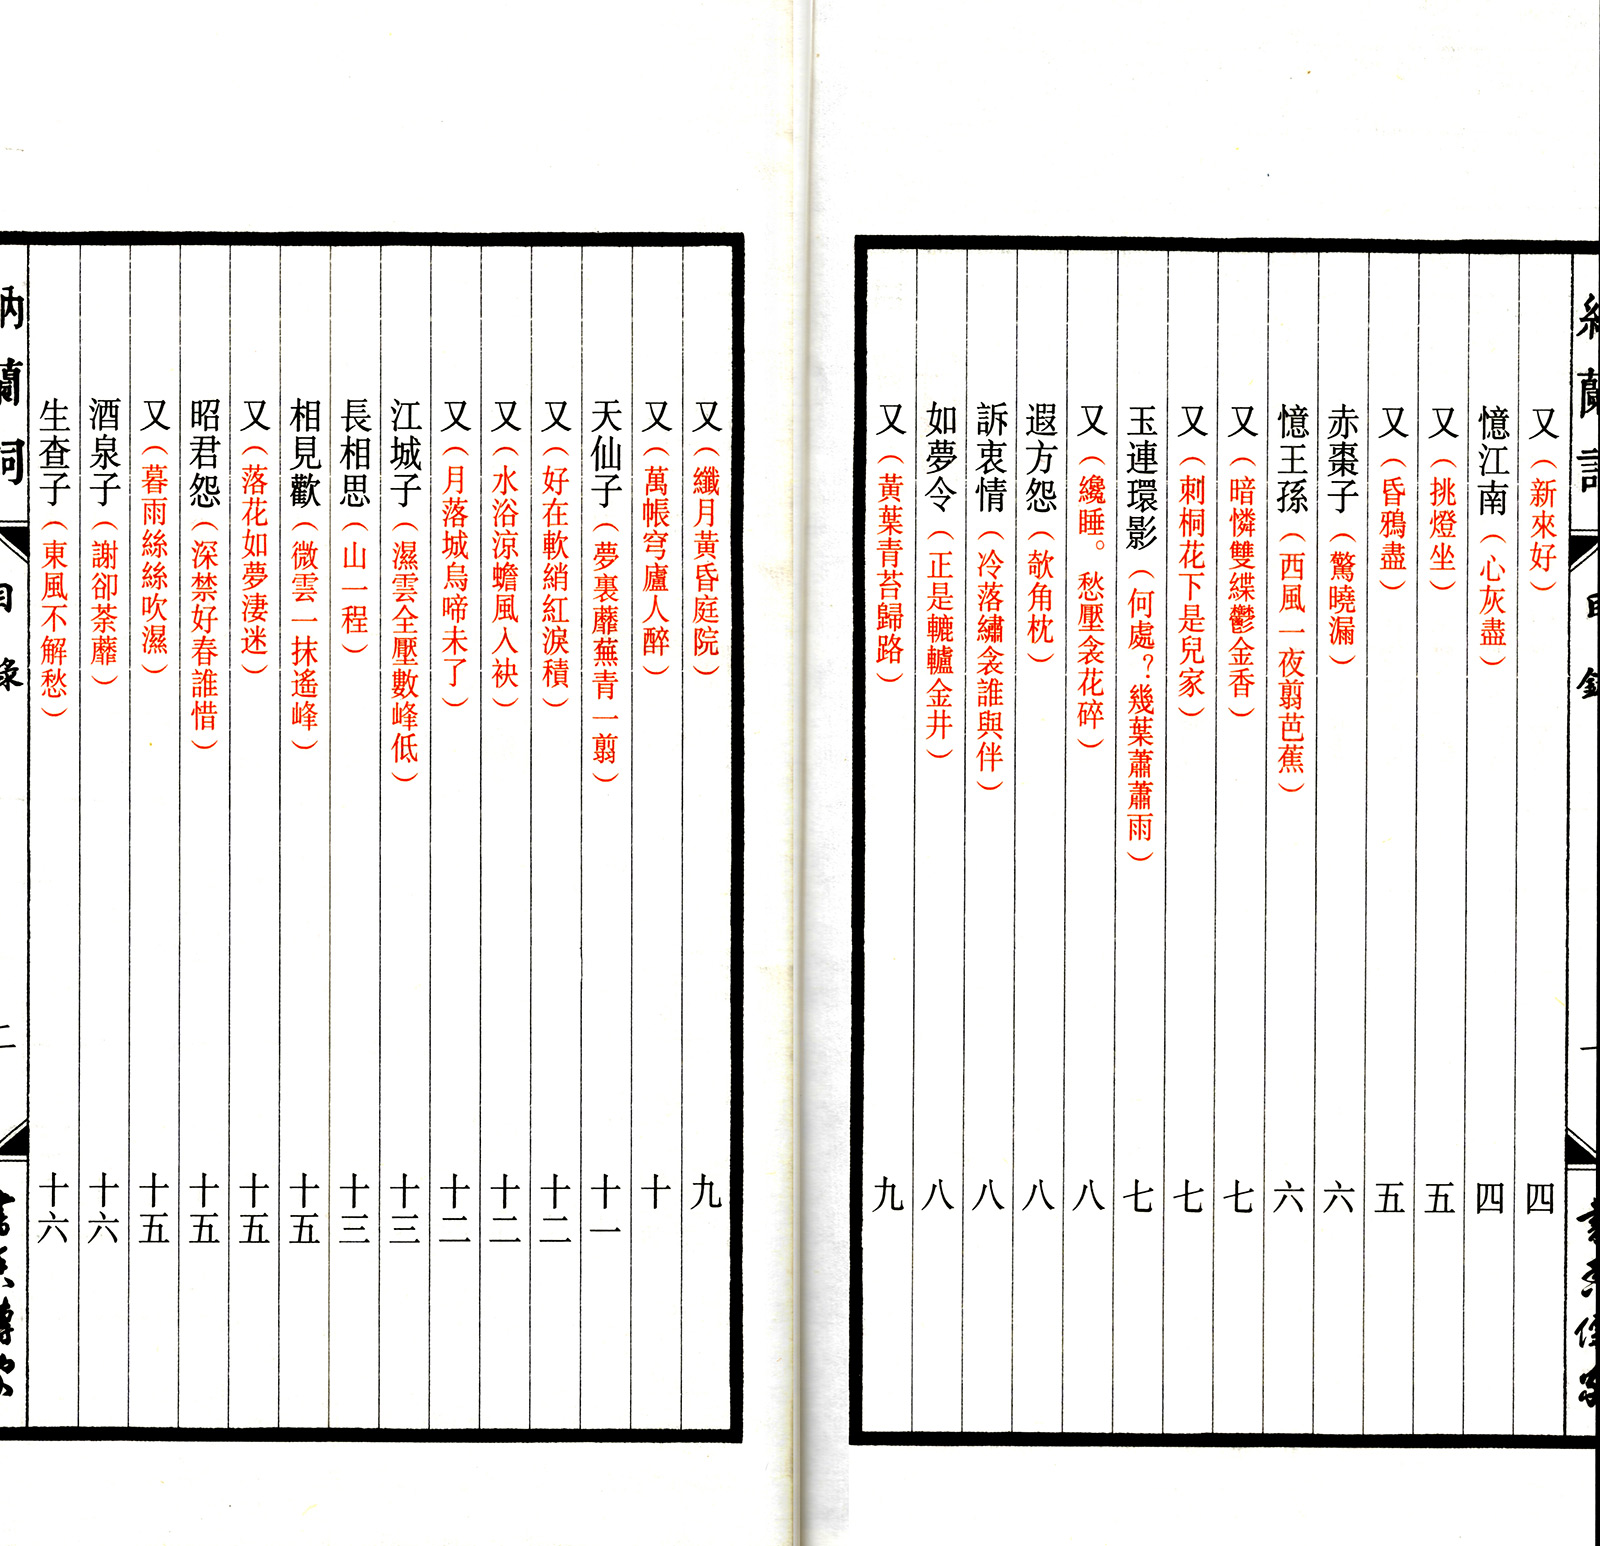 又（新來好）四
憶江南（心灰盡）四
又（挑燈坐）五
又（昏鴉盡）五
赤棗子（驚曉漏）六
憶王孫（西風一夜翦芭蕉）六
又（暗憐雙緤鬱金香）七
又（刺桐花下是兒家）七
玉連環影（何處？幾葉蕭蕭雨）七
又（纔睡。愁壓衾花碎）八
遐方怨（欹角枕）八
訴衷情（冷落繡衾誰與伴）八
如夢令（正是轆轤金井）八
又（黃葉青苔歸路）九
又（纖月黃昏庭院）九
又（萬帳穹廬人醉）十
天仙子（夢裏蘼蕪青一翦）十一
又（好在軟綃紅淚積）十二
又（水浴涼蟾風入袂）十二
又（月落城烏啼未了）十二
江城子（濕雲全壓數峰低）十三
長相思（山一程）十三
相見歡（微雲一抹遙峰）十五
又（落花如夢淒迷）十五
昭君怨（深禁好春誰惜）十五
又（暮雨絲絲吹濕）十五
酒泉子（謝卻荼蘼）十六
生查子（東風不解愁）十六
納蘭詞
目錄
二